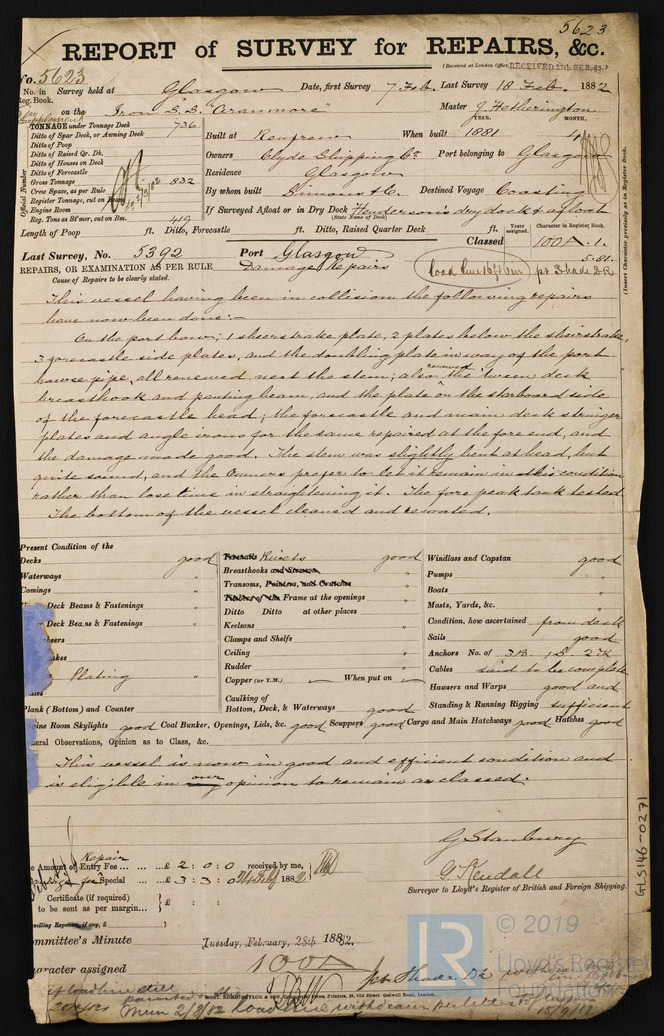 5623
REPORT of SURVEY for REPAIRS, &c.
(Received at London Office, RECEIVED 21st FEB. 82.)
No. 5623
No. in Reg. Book.
Survey held at Glasgow Date, first Survey 7 Feb. Last Survey 18 Feb. 1882
on the Iron S.S. "Aranmore" Master J. Fetherington
TONNAGE under Tonnage Deck 736
YEAR. MONTH.
Ditto of Spar Deck, or Awning Deck
Built at Renfrew When built 1881 4
Ditto of Poop
Ditto of Raised Qr. Dk.
Owners Clyde Shipping Co. Port belonging to Glasgow
Ditto of Houses on Deck
Ditto of Forecastle
Residence Glasgow
Gross Tonnage 832
Crew Space, as per Rule
By whom built Simons & Co. Destined Voyage Coasting
Register Tonnage, cut on Beam
Engine Room
If Surveyed Afloat or in Dry Dock Henderson's dry dock & afloat
(State Name of Dock)
Reg. Tons as St'mer, cut on Bm. 419
Official Number
(Insert Character precisely as in Register Book.
Length of Poop ft. Ditto, Forecastle ft. Ditto, Raised Quarter Deck ft.
Years assigned. Character in Register Book.
Classed 100A.1.
5.81
Last Survey, No. 5392 Port Glasgow
REPAIRS, OR EXAMINATION AS PER RULE Damage Repairs
pr Shade Dk
Cause of Repairs to be clearly stated.
This vessel having been in collision the following repairs
have now been done:-
On the port bow; 1 sheerstrake plate, 2 plates below the sheerstrake,
3 forecastle side plates, and the doubling plate in way of the port
hawse pipe, all renewed next the stem; also renewed the tween deck
breasthook and panting beam, and the plate on the starboard side
of the forecastle head; the forecastle and main deck stringer
plates and angle irons for the same repaired at the fore end, and
the damage made good. The stem was slightly bent at head, but
quite sound, and the Owners prefer to let it remain in this condition
rather than lose time in straightening it. The fore peak tank tested.
The bottom of the vessel cleaned and recoated.
Present Condition of the
Decks good
Waterways "
Comings "
Deck Beams & Fastenings "
Deck Beams & Fastenings "
Plating "
Plank (Bottom) and Counter "
Treenails Rivets good
Breasthooks and Stemson "
Transoms, Pointers, and Crutches "
Timbers of the Frame at the openings "
Ditto Ditto at other places "
Keelsons "
Clamps and Shelfs "
Ceiling "
Rudder "
Copper (or Y.M.) When put on
Caulking of
Bottom, Deck, & Waterways good
Windlass and Capstan good
Pumps "
Boats "
Masts, Yards, &c. "
Condition, how ascertained from deck
Sails good
Anchors No. of 3B. 1S. 2K
Cables said to be complete
Hausers and Warps good and
Standing & Running Rigging sufficient
Engine Room Skylights good Coal Bunker, Openings, Lids, &c. good Scuppers good Cargo and Main Hatchways good Hatches good
General Observations, Opinion as to Class, &c.
This vessel is now in good and efficient condition and
is eligible in our opinion to remain as classed.
G Stanbury
G. Kendall
Surveyor to Lloyd's Register of British and Foreign Shipping.
Repair
The Amount of Entry Fee ... £ 2 : 0 : 0 received by me,
Special ... £ 3 : 3 : 0 24 Feby 1882
Certificate (if required) £ : :
to be sent as per margin...
Committee's Minute Tuesday, February, 28th 1882.
Character assigned 100A
pr Shade Dk
GLS146-0271
LR
© 2019
Lloyd's Register
Foundation